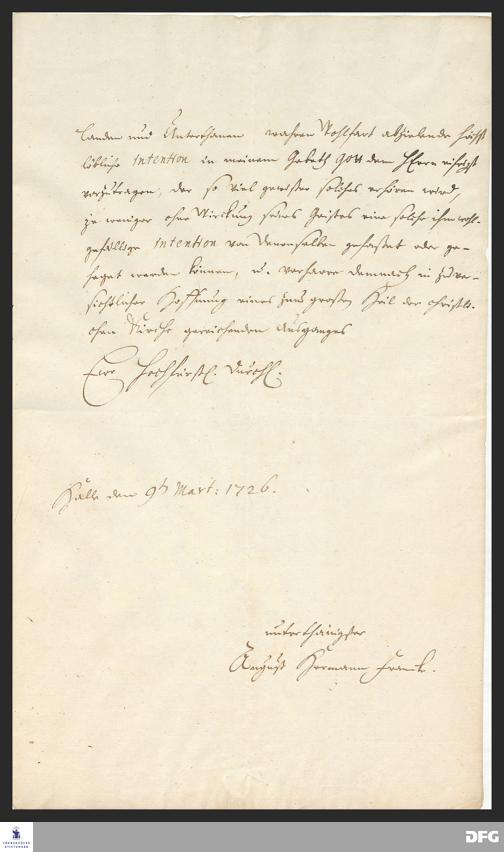 Landen und Unterthanen wahren Wohlfart abzielende höchst
löbliche intention in meinem Gebeth Gott dem HErrn
vorzutragen, der so viel gewisser solches erhören wird,
je weniger ohne Wirckung seines Geistes eine solche ihm wohl-
gefällige intention von Denenselben gefasset oder ge-
heget werden können, u. verharre demnach in zuver-
sichtlicher Hoffnung eines zum großen Heil der christli-
chen Kirche gereichenden Ausganges
Ewr Hochfürstl. Durchl.
Halle den 9t Mart: 1726.
unterthänigster
August Hermann Franck.
FRANCKESCHE STIFTUNGEN
DFG